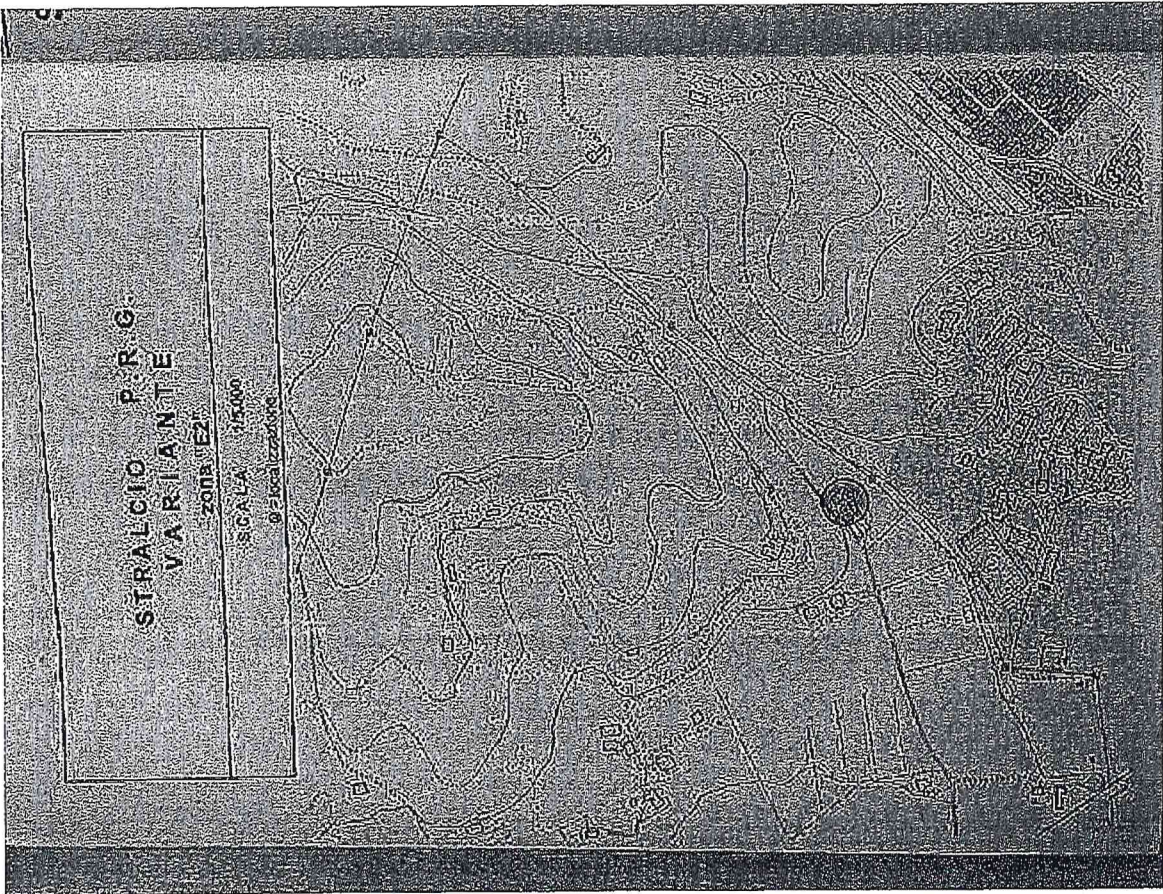 STRALCIO P.R.G.
VARIANTE
zona "E2"
SCALA 1/5.000
localizzazione